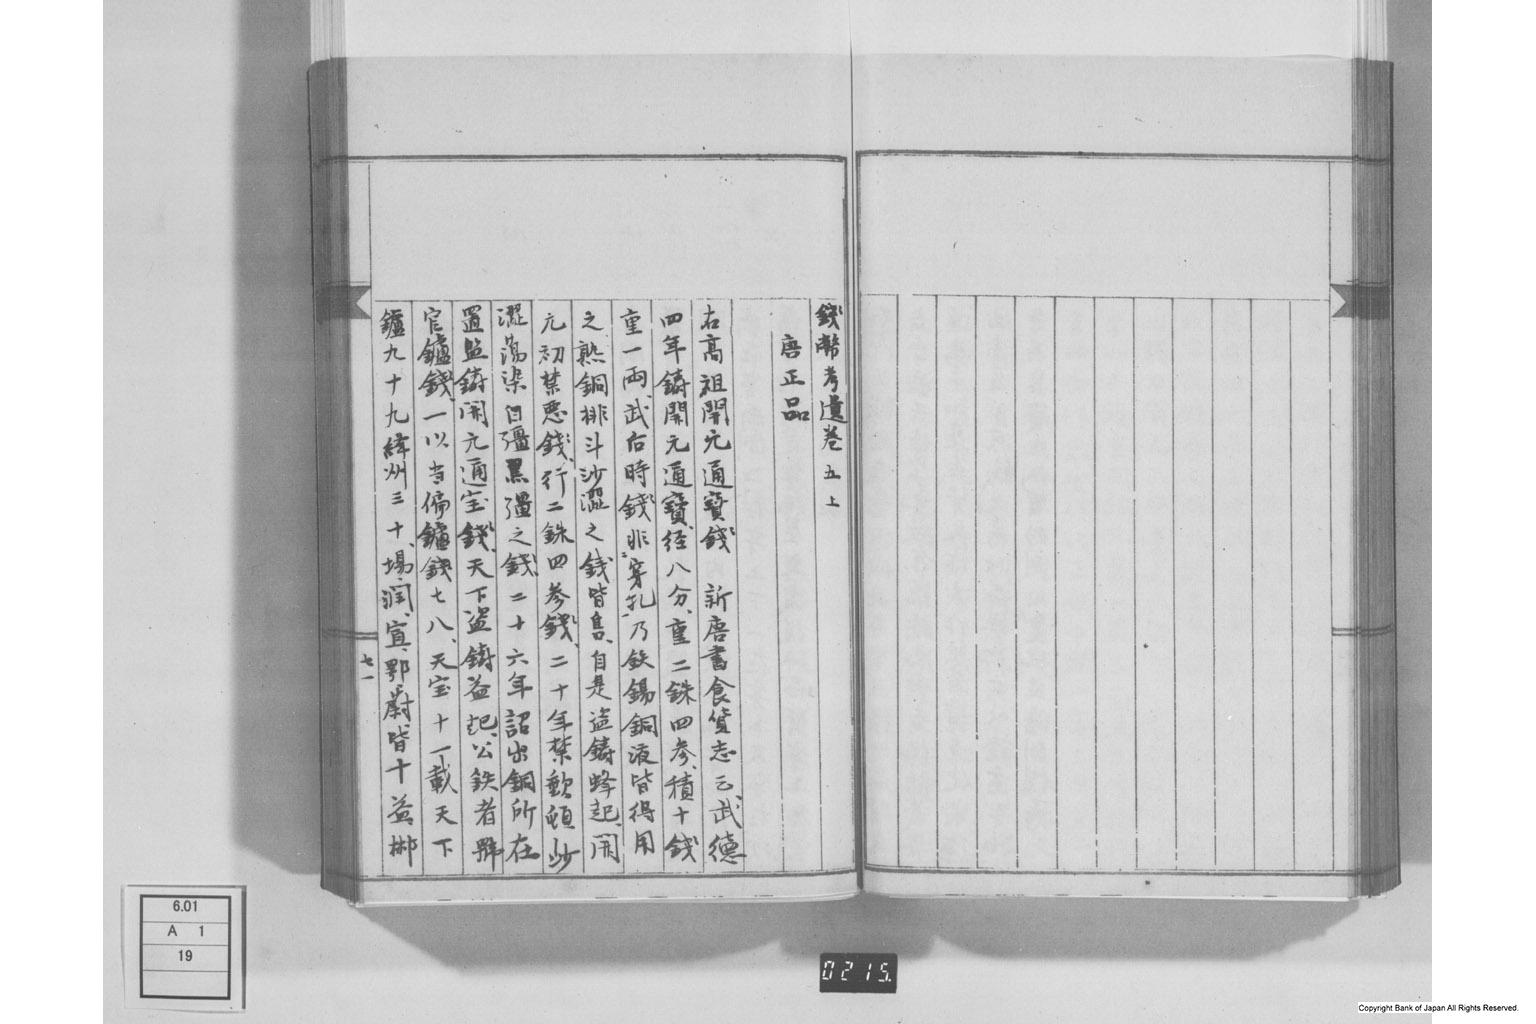 錢幣考遺巻五上
唐正品
右高祖開元通寳錢 新唐書食貨志云、武德
四年鑄開元通寳、径八分、重二銖四参、積十錢
重一兩、武后時錢非穿孔乃鉄錫銅液皆得用
之、熟銅排斗沙澀之錢皆售、自是盗鑄蜂起、開
元初禁悪錢、行二銖四参錢、二十年禁歉頓沙
澀蕩染白彊黒彊之錢、二十六年詔出銅所在
置監鑄開元通宝錢、天下盗鑄益起、公鉄者號
官鑪錢、一以当偏鑪錢七八、天宝十一載天下
鑪九十九絳州三十、場、潤、宣、鄂、蔚皆十益、郴
七一
6.01
A 1
19
0215.
Copyright Bank of Japan All Rights Reserved.